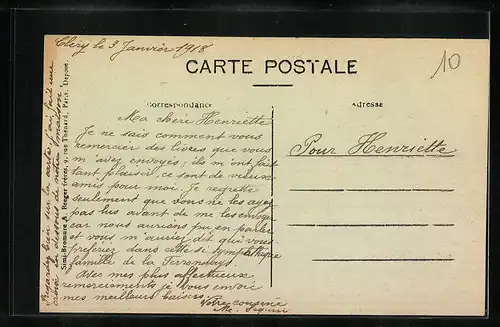 Cléry le 3 Janvier 1918
CARTE POSTALE
Correspondance
Adresse
10
Ma chère Henriette
Je ne sais comment vous
remercier des livres que vous
m'avez envoyés; ils m'ont fait
tant plaisir, ce sont de vieux
amis pour moi. Je regrette
seulement que vous ne les ayez
pas lus avant de me les envoyer
car nous aurions pu en parler
et vous m'auriez dit qui vous
preferiez dans cette si sympathique
famille de la
Avec mes plus affectueux
remerciements je vous envoie
mes meilleurs baisers.
Votre cousine
Me.
Pour Henriette
Regardez bien sur la carte j'ai fait une
croix au dessous de notre maison.
Simi-Bromure A. Breger frères, 9, rue Thénard, Paris. Déposé.